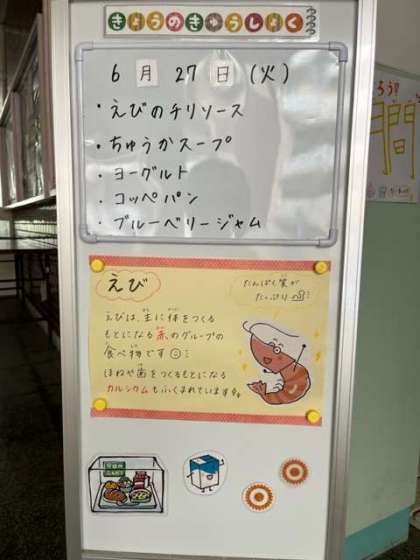 きょうのきゅうしょく
6月27日(火)
・えびのチリソース
・ちゅうかスープ
・ヨーグルト
・コッペパン
・ブルーベリージャム
えび
たんぱく質が
たっぷり
えびは、主に体をつくる
もとになる赤のグループの
食べ物です
ほねや歯をつくるもとになる
カルシウムもふくまれています。
間